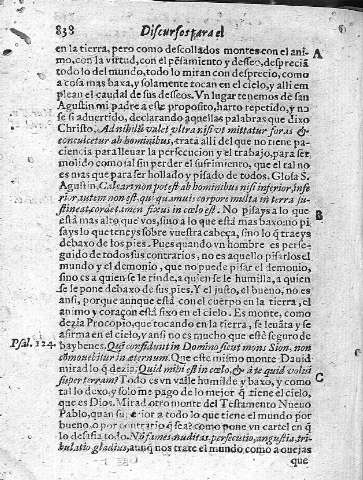 838 Discursos para el
en la tierra, pero como descollados montes con el ani-
mo, con la virtud, con el pẽsamiento y desseo, desprecia
todo lo del mundo, todo lo miran con desprecio, como
a cosa mas baxa, y solamente tocan en el cielo, y alli em
plean el caudal de sus desseos. Vn lugar tenemos de san
Agustin mi padre a este proposito, harto repetido, y no
se si aduertido, declarando aquellas palabras que dixo
Christo. Ad nihilũ valet vltra nisi vt mittatur foras &
conculcetur ab hominibus, trata alli del que no tiene pa-
ciencia para lleuar la persecucion y el trabajo, para ser
molido como sal sin perder el sufrimiento, que el tal no
es mas que para ser hollado y pisado de todos. Glosa S.
Agustin. Calcari non potest ab hominibus nisi inferior, infe
rior autem non est, qui quamuis corpore multa in terra su-
stineat, corde tamen fixus in cœlo est. No pisays a lo que
està mas alto que vos, sino a lo que està mas baxo: no pi
says lo que teneys sobre vuestra cabeça, sino lo q̃ traeys
debaxo de los pies. Pues quando vn hombre es perse-
guido de todos sus contrarios, no es aquello pisarlos el
mundo y el demonio, que no puede pisar el demonio,
sino es a quien se le rinde, a quien se le humilla, a quien
se le pone debaxo de sus pies. Y el justo, el bueno, no es
ansi, porque aunque està con el cuerpo en la tierra, el
animo y coraçon està fixo en el cielo. Es monte, como
dezia Procopio, que tocando en la tierra, se leuãta y se
afirma en el cielo, y ansi no es mucho que estè seguro de
Psal. 124. bayuenes. Qui confidunt in Domino sicut mons Sion, non
cõmouebitur in æternum. Que este mismo monte Dauid
mirad lo q̃ dezia: Quid mihi est in cœlo, & à te quid volui
super terram? Todo es vn valle humilde y baxo, y como
tal lo dexo, y solo me pago de lo mejor q̃ tiene el cielo,
que es Dios. Mirad otro monte del Testamento Nueuo
Pablo, quan superior a todo lo que tiene el mundo por
bueno, o por contrario q̃ sea? como pone vn cartel en q̃
lo desafia todo. Nõ fames, nuditas, persecutio, angustia, tri-
bulatio, gladius, aunq̃ nos trate el mundo como a ouejas
que
A
B
C